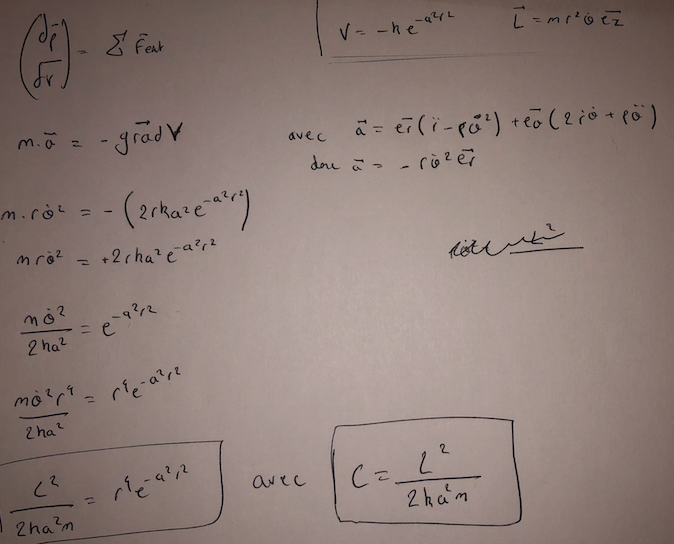 (dp⃗/dr) = Σ F⃗ext
V = -k e^{-a²r²}
L⃗ = m r² θ̇ e⃗z
m.a⃗ = - grad⃗ V
avec a⃗ = e⃗r (r̈ - ρθ̇²) + e⃗θ (2ṙθ̇ + ρθ̈)
donc a⃗ = - rθ̇² e⃗r
m.rθ̇² = - (2rka²e^{-a²r²})
mrθ̇² = +2rka²e^{-a²r²}
mθ̇²/2ka² = e^{-a²r²}
mθ̇²r⁴/2ka² = r⁴e^{-a²r²}
L²/2ka²m = r⁴e^{-a²r²} avec C = L²/2ka²m